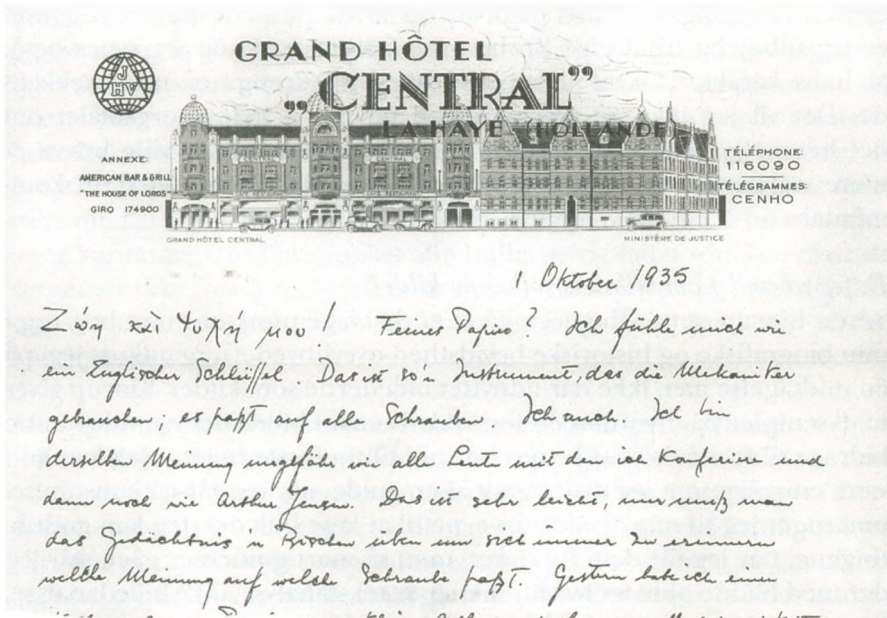 JHV
GRAND HÔTEL
„CENTRAL”
LA HAYE (HOLLANDE)
ANNEXE:
AMERICAN BAR & GRILL
"THE HOUSE OF LORDS"
GIRO 174900
TÉLÉPHONE:
116090
TÉLÉGRAMMES:
CENHO
GRAND HÔTEL CENTRAL
MINISTÈRE DE JUSTICE
1. Oktober 1935
Feines Papier? Ich fühle mich wie
ein Englischer Schlüssel. Das ist so'n Instrument das die Mechaniker
gebrauchen, es paßt auf alle Schrauben. Ich auch. Ich bin
derselben Meinung ungefähr wie alle Leute mit denen ich konferiere und
dann noch wie Arthur Jensen. Das ist sehr leicht, nur muß man
das Gedächtnis ein bischen üben um sich immer zu erinnern
welche Meinung auf welche Schraube paßt. Gestern hab ich eine